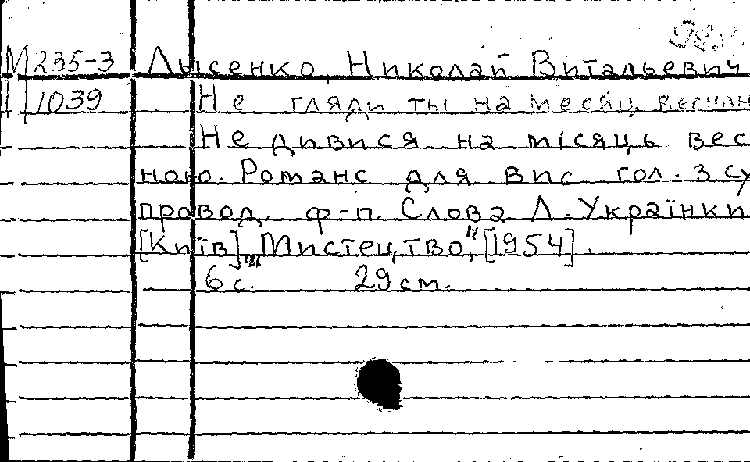 М 235-3 Лысенко, Николай Витальевич
1039 Не гляди ты на месяц весной
Не дивися на місяць вес
ною. Романс для вис гол. з су
провод. ф-п. Слова Л. Українки
[Київ], "Мистецтво", [1954].
6 с. 29 см.